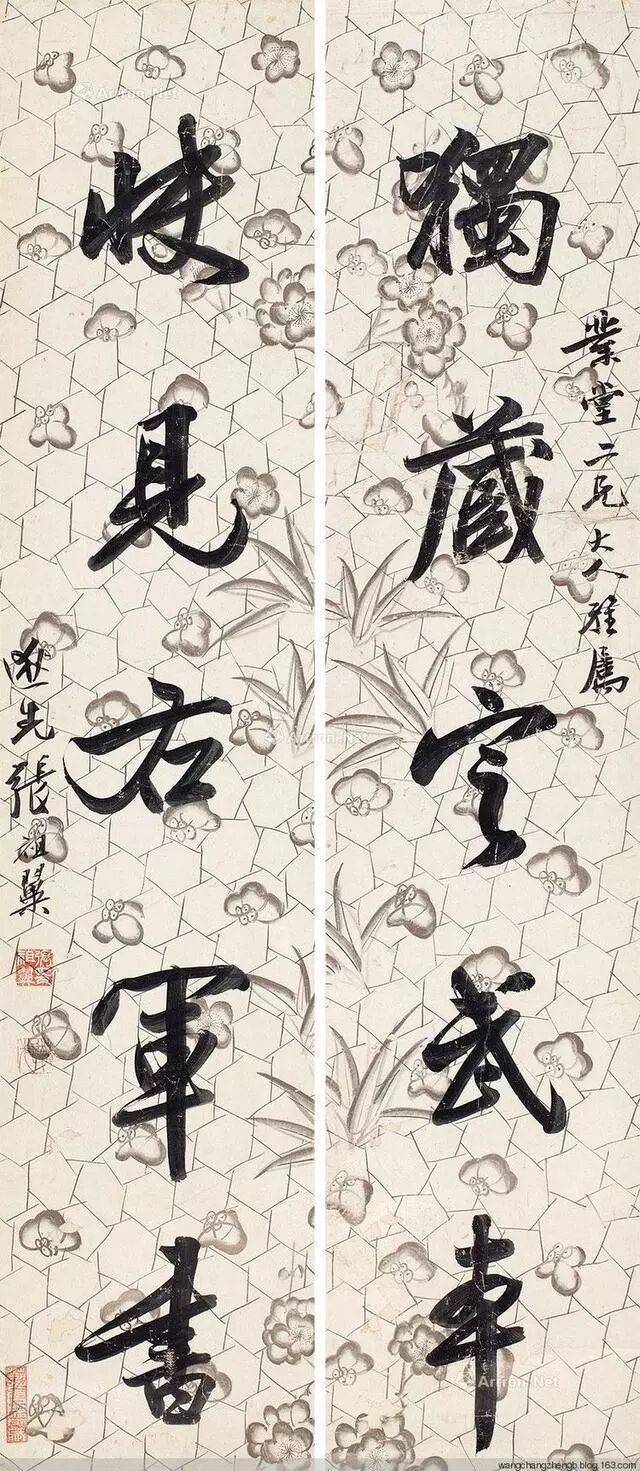 獨藏定武本
業堂二兄大人雅屬
快見右軍書
逖先張祖翼
Artron.Net
Artron.Net
wangchangzhengb.blog.163.com